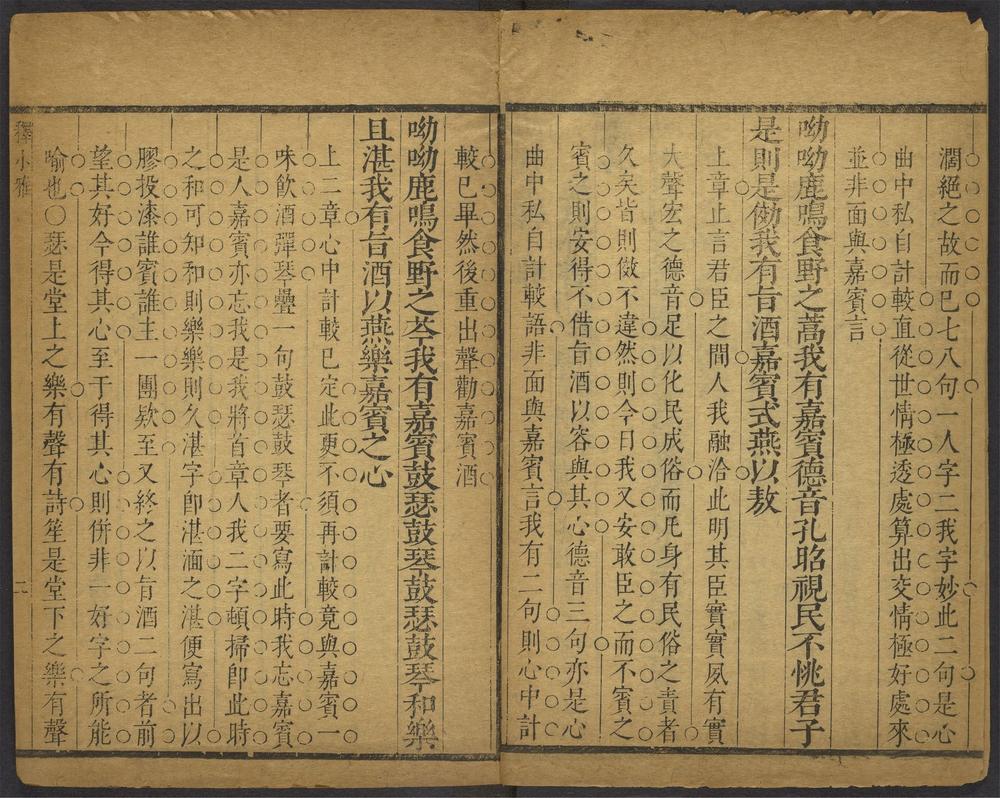 濶絕之故而已七八句一人字二我字妙此二句是心
曲中私自計較直從世情極透處算出交情極好處來
並非面與嘉賓言
呦呦鹿鳴食野之蒿我有嘉賓德音孔昭視民不恌君子
是則是傚我有旨酒嘉賓式燕以敖
上章止言君臣之間人我融洽此明其臣實實夙有實
大聲宏之德音足以化民成俗而凡身有民俗之責者
久矣皆則傚不違然則今日我又安敢臣之而不賓之
賓之則安得不借旨酒以容與其心德音三句亦是心
曲中私自計較語非面與嘉賓言我有二句則心中計
較已畢然後重出聲勸嘉賓酒
呦呦鹿鳴食野之芩我有嘉賓鼓瑟鼓琴鼓瑟鼓琴和樂
且湛我有旨酒以燕樂嘉賓之心
上二章心中計較已定此更不須再計較竟與嘉賓一
味飲酒彈琴疊一句鼓瑟鼓琴者要寫此時我忘嘉賓
是人嘉賓亦忘我是我將首章人我二字頓掃卽此時
之和可知和則樂樂則久湛字卽湛湎之湛便寫出以
膠投漆誰賓誰主一團欵至又終之以旨酒二句者前
望其好今得其心至于得其心則併非一好字之所能
喻也○瑟是堂上之樂有聲有詩笙是堂下之樂有聲
釋小雅
二